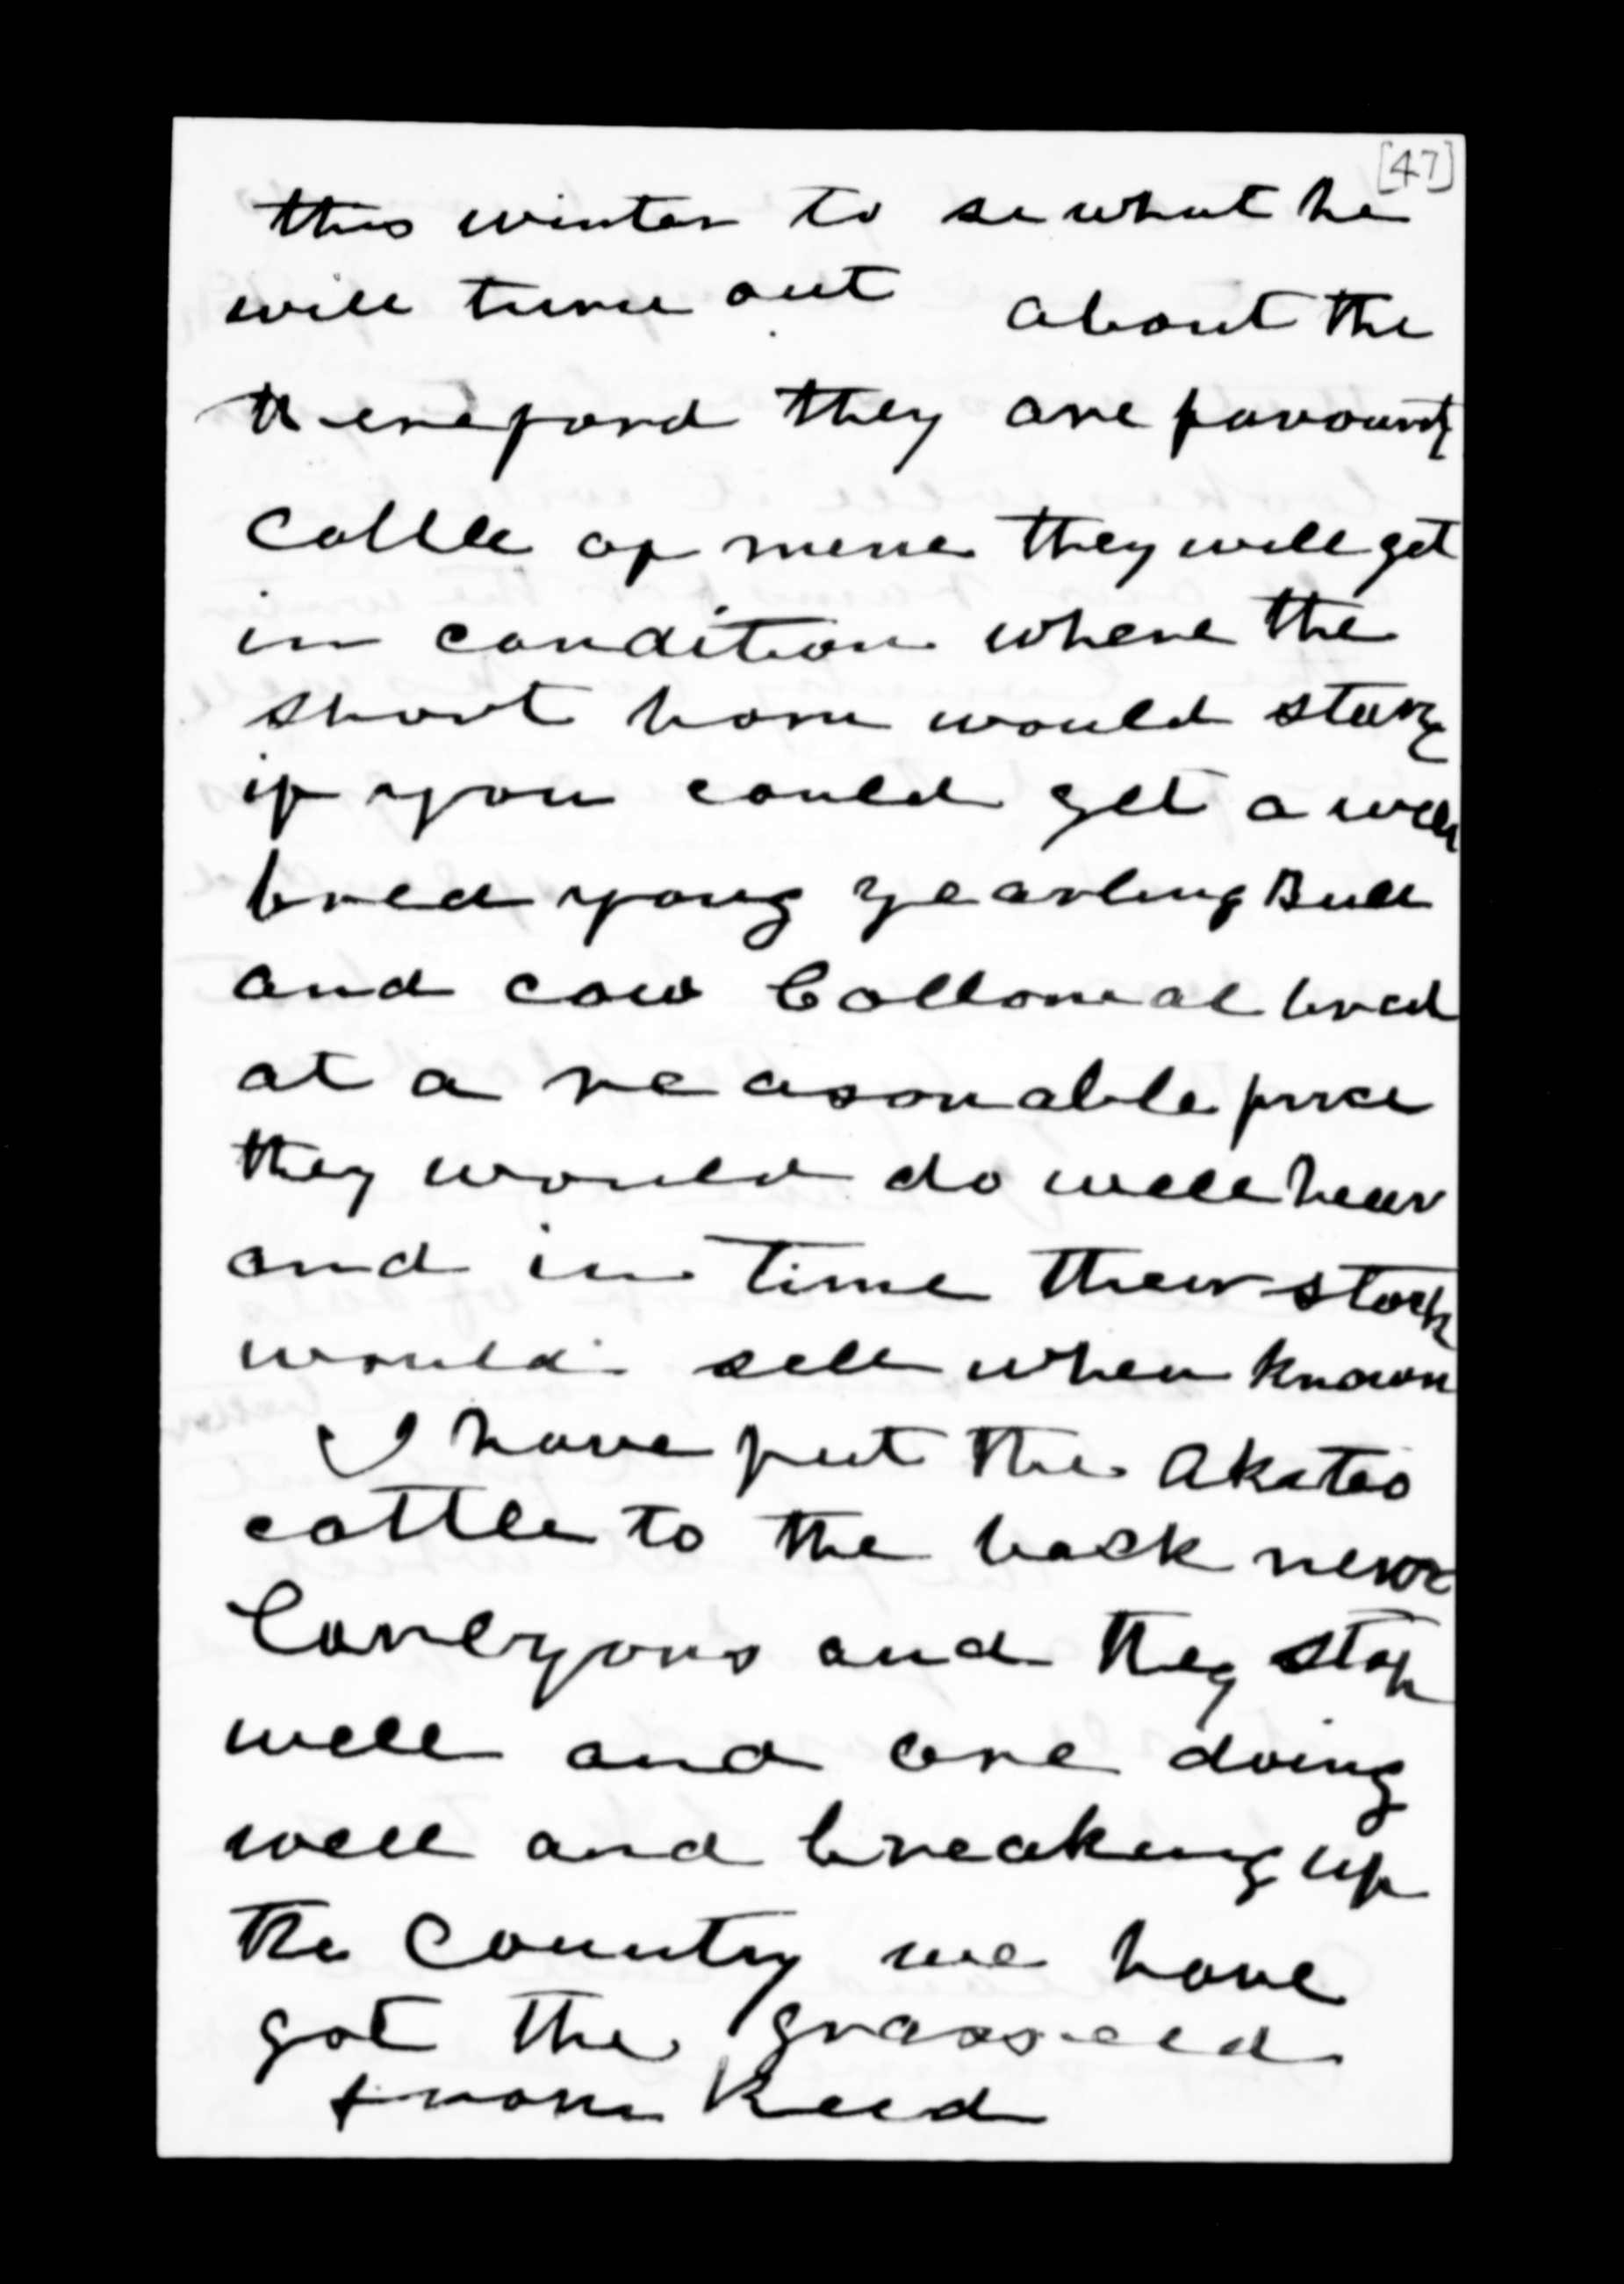 [47]
this winter to se what he
will turn out about the
Hereford they are favourity
Cattle of mine they will get
in condition where the
short horn would starve
if you could get a well
bred yong yearling Bull
and cow Collonial bred
at a reasonable price
they would do well hear
and in time their stock
would sell when known
I have put the Akateo
cattle to the back near
Conelyons and they stop
well and are doing
well and breaking up
the Country we have
got the grasseed
from Reed